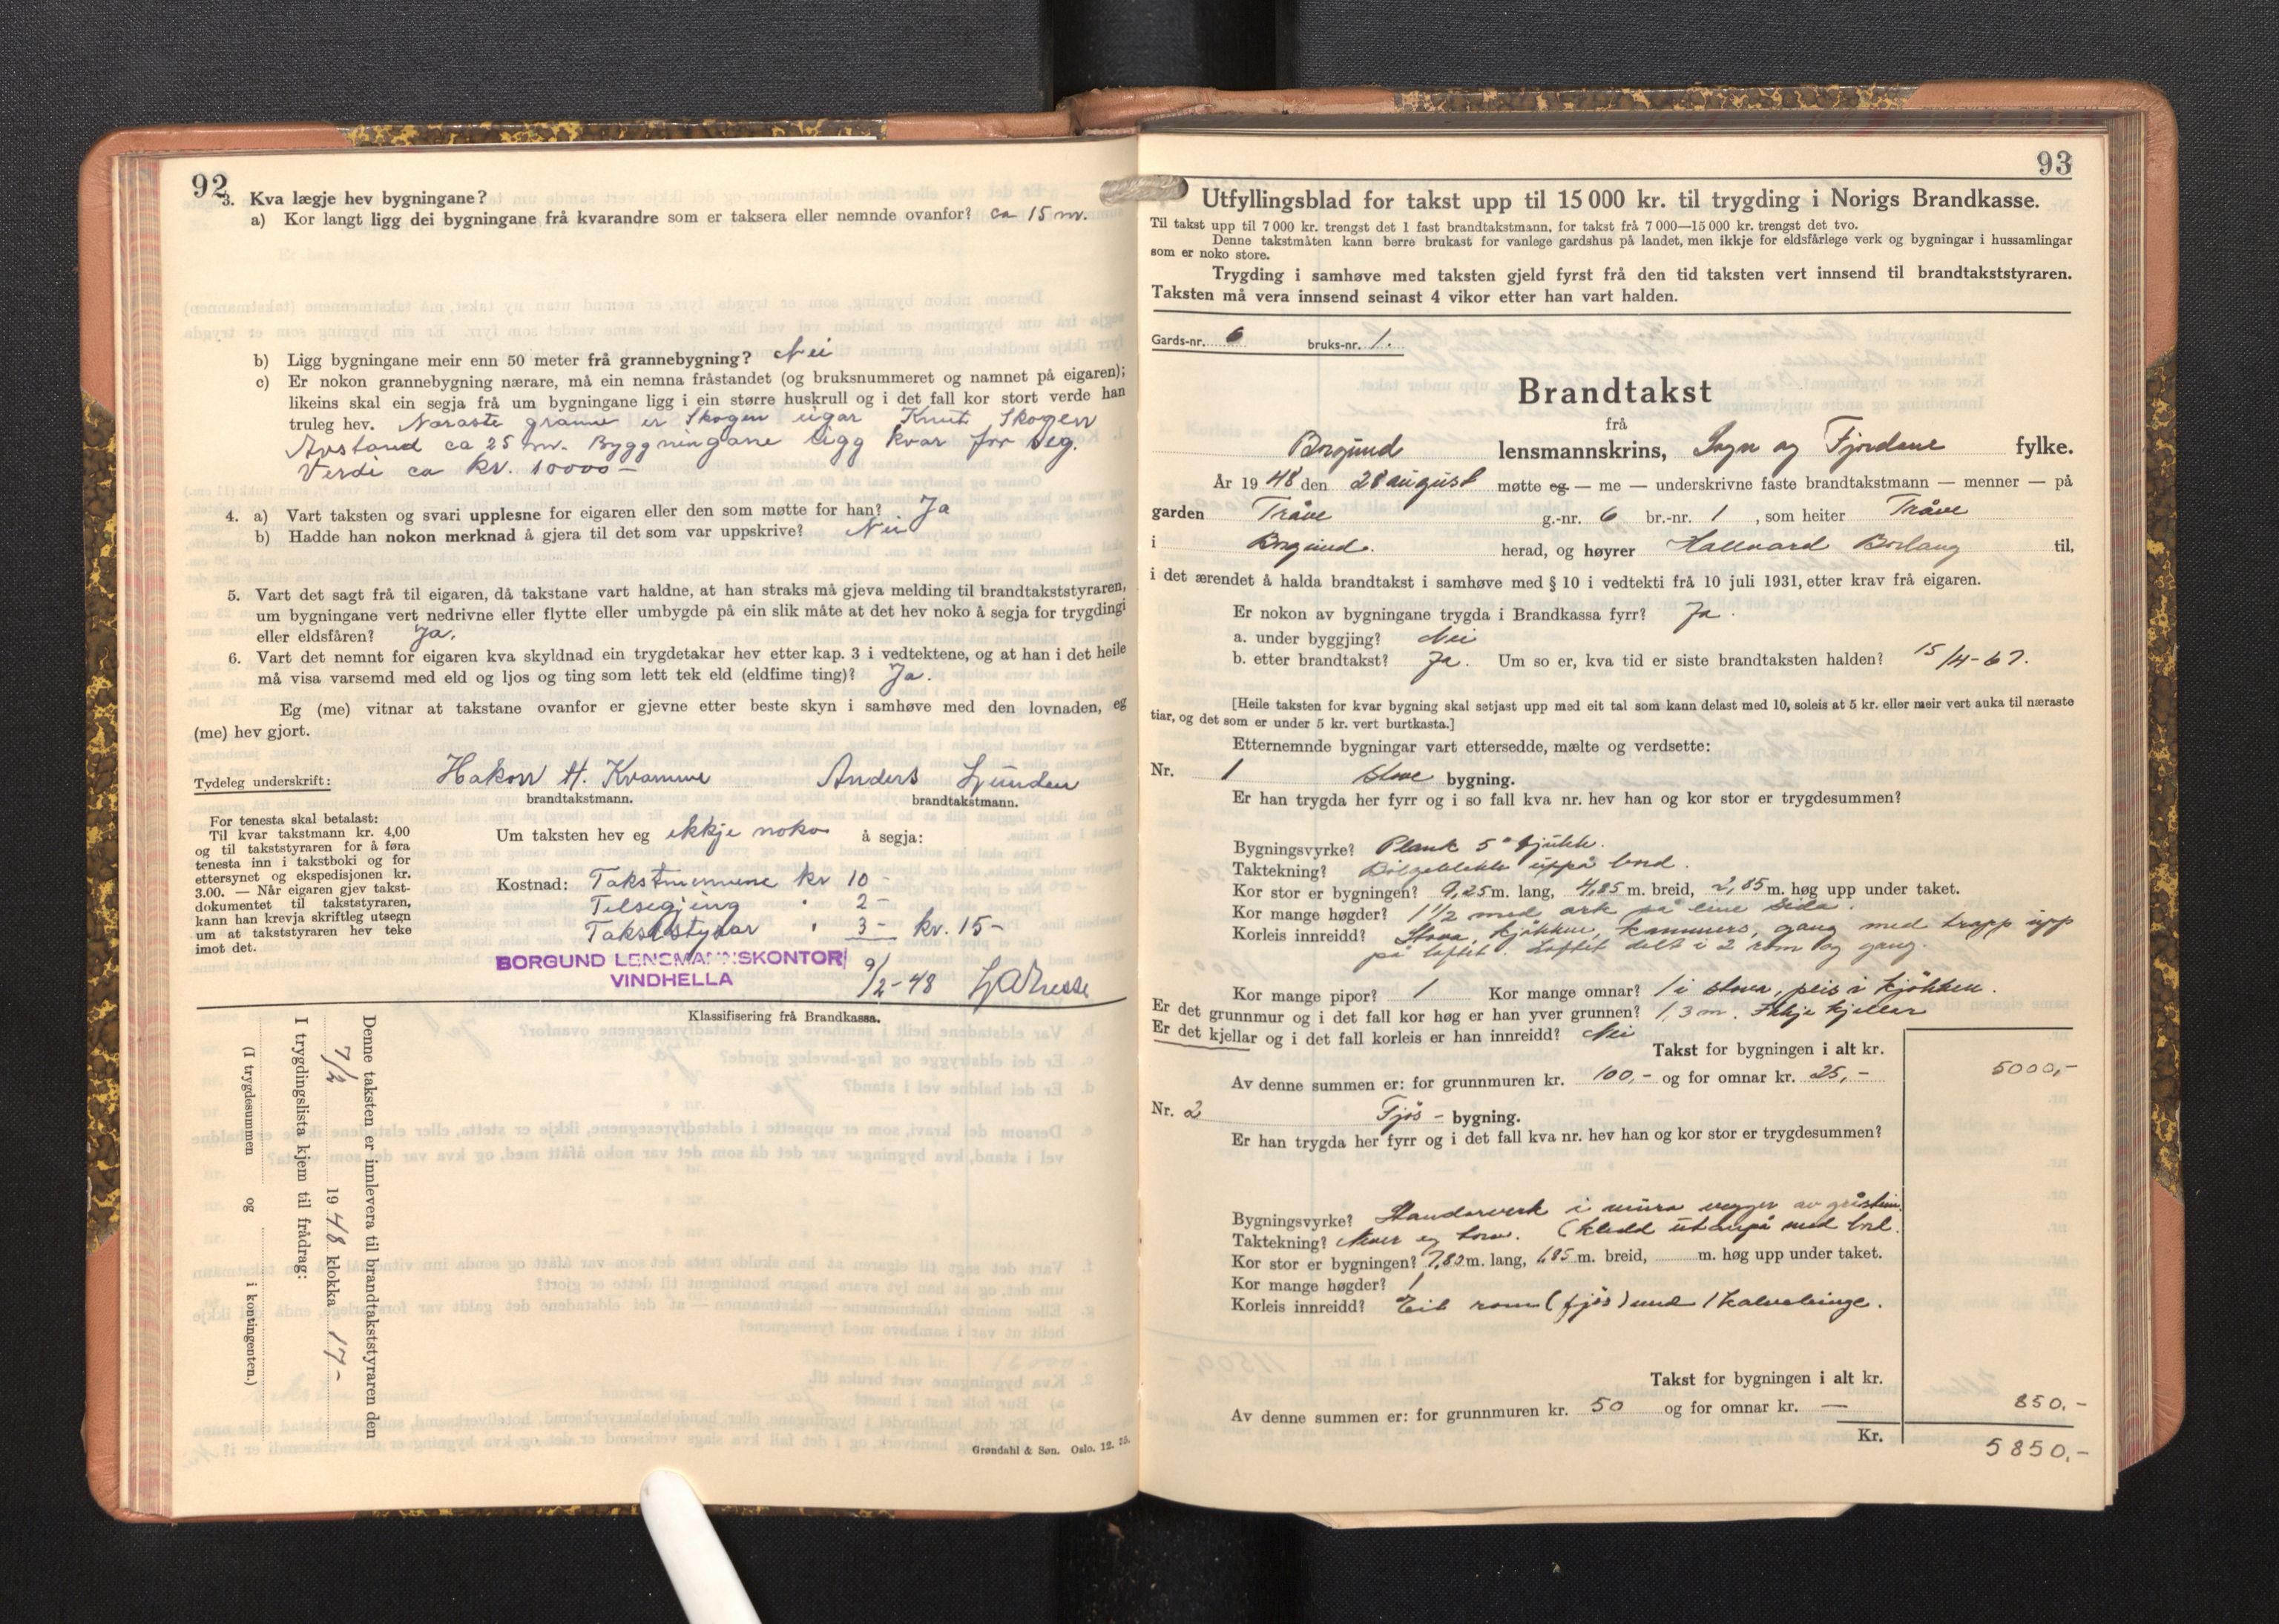 92
3. Kva lægje hev bygningane?
a) Kor langt ligg dei bygningane frå kvarandre som er taksera eller nemnde ovanfor? ca 15 m.
b) Ligg bygningane meir enn 50 meter frå grannebygning? Nei
c) Er nokon grannebygning nærare, må ein nemna fråstandet (og bruksnummeret og namnet på eigaren);
likeins skal ein segja frå um bygningane ligg i ein større huskrull og i det fall kor stort verde han
truleg hev. Næraste granne er Skogen eigar Knut Skogen
Avstand ca 25 m. Byggningane ligg kvar for seg.
Verdi ca kr. 10000 –
4. a) Vart taksten og svari upplesne for eigaren eller den som møtte for han? Ja
b) Hadde han nokon merknad å gjera til det som var uppskrive? Nei
5. Vart det sagt frå til eigaren, då takstane vart haldne, at han straks må gjeva melding til brandtakststyraren,
um bygningane vert nedrivne eller flytte eller umbygde på ein slik måte at det hev noko å segja for trygdingi
eller eldsfåren? Ja.
6. Vart det nemnt for eigaren kva skyldnad ein trygdetakar hev etter kap. 3 i vedtektene, og at han i det heile
må visa varsemd med eld og ljos og ting som lett tek eld (eldfime ting)? Ja.
Eg (me) vitnar at takstane ovanfor er gjevne etter beste skyn i samhøve med den lovnaden, eg
(me) hev gjort.
Tydeleg underskrift: Hakon H. Kvamme Anders Ljunden
brandtakstmann. brandtakstmann.
For tenesta skal betalast:
Til kvar takstmann kr. 4,00
og til takststyraren for å føra
tenesta inn i takstboki og for
ettersynet og ekspedisjonen kr.
3.00. — Når eigaren gjev takst-
dokumentet til takststyraren,
kann han krevja skriftleg utsegn
um at takststyraren hev teke
imot det.
Um taksten hev eg ikkje noko å segja:
Kostnad: Takstmennene kr 10 –
Tilsegjing " 2 –
Takststyrar " 3 – kr. 15 –
BORGUND LENSMANNSKONTOR
VINDHELLA
9/2-48
Klassifisering frå Brandkassa.
Denne taksten er innlevera til brandtakststyraren den
7/2 1948 klokka 17 –
I trygdingslista kjem til frådrag:
(I trygdesummen og i kontingenten.)
Grøndahl & Søn. Oslo. 12. 35.
93
Utfyllingsblad for takst upp til 15 000 kr. til trygding i Norigs Brandkasse.
Til takst upp til 7 000 kr. trengst det 1 fast brandtakstmann, for takst frå 7 000—15 000 kr. trengst det tvo.
Denne takstmåten kann berre brukast for vanlege gardshus på landet, men ikkje for eldsfårlege verk og bygningar i hussamlingar
som er noko store.
Trygding i samhøve med taksten gjeld fyrst frå den tid taksten vert innsend til brandtakststyraren.
Taksten må vera innsend seinast 4 vikor etter han vart halden.
Gards-nr. 6 bruks-nr. 1.
Brandtakst
frå
Borgund lensmannskrins, Sogn og Fjordane fylke.
År 1948 den 28 august møtte eg — me — underskrivne faste brandtakstmann — menner — på
garden Tråve g.-nr. 6 br.-nr. 1, som heiter Tråve
i Borgund. herad, og høyrer Hallvard Borlaug til,
i det ærendet å halda brandtakst i samhøve med § 10 i vedtekti frå 10 juli 1931, etter krav frå eigaren.
Er nokon av bygningane trygda i Brandkassa fyrr? Ja.
a. under byggjing? Nei
b. etter brandtakst? Ja. Um so er, kva tid er siste brandtaksten halden? 15/4-67.
[Heile taksten for kvar bygning skal setjast upp med eit tal som kann delast med 10, soleis at 5 kr. eller meir vert auka til næraste
tiar, og det som er under 5 kr. vert burtkasta.]
Etternemnde bygningar vart ettersedde, mælte og verdsette:
Nr. 1 Stove bygning.
Er han trygda her fyrr og i so fall kva nr. hev han og kor stor er trygdesummen?
Bygningsvyrke? Plank 5" tjukk.
Taktekning? Bølgeblekk uppå bord.
Kor stor er bygningen? 9,25 m. lang, 4,85 m. breid, 2,85 m. høg upp under taket.
Kor mange høgder? 1 1/2 med ark på eine sida.
Korleis innreidd? Stova, kjøkken, kammers, gang med trapp upp
på loftet. Loftet delt i 2 rom og gang.
Kor mange pipor? 1 Kor mange omnar? 1 i stova, peis i kjøkken.
Er det grunnmur og i det fall kor høg er han yver grunnen? 1,3 m. Ikkje kjellar
Er det kjellar og i det fall korleis er han innreidd? Nei
Takst for bygningen i alt kr. 5000,-
Av denne summen er: for grunnmuren kr. 100,- og for omnar kr. 25,-
Nr. 2 Fjøs - bygning.
Er han trygda her fyrr og i det fall kva nr. hev han og kor stor er trygdesummen?
Bygningsvyrke? Standarverk i mura vegger av gråstein.
Taktekning? Never og torv. (kledd utanpå med bord.
Kor stor er bygningen? 7,82 m. lang, 6,85 m. breid, m. høg upp under taket.
Kor mange høgder? 1
Korleis innreidd? Eit rom (fjøs) med 1 kalvebinge.
Takst for bygningen i alt kr. 850.-
Av denne summen er: for grunnmuren kr. 50 og for omnar kr. —
Kr. 5850,-